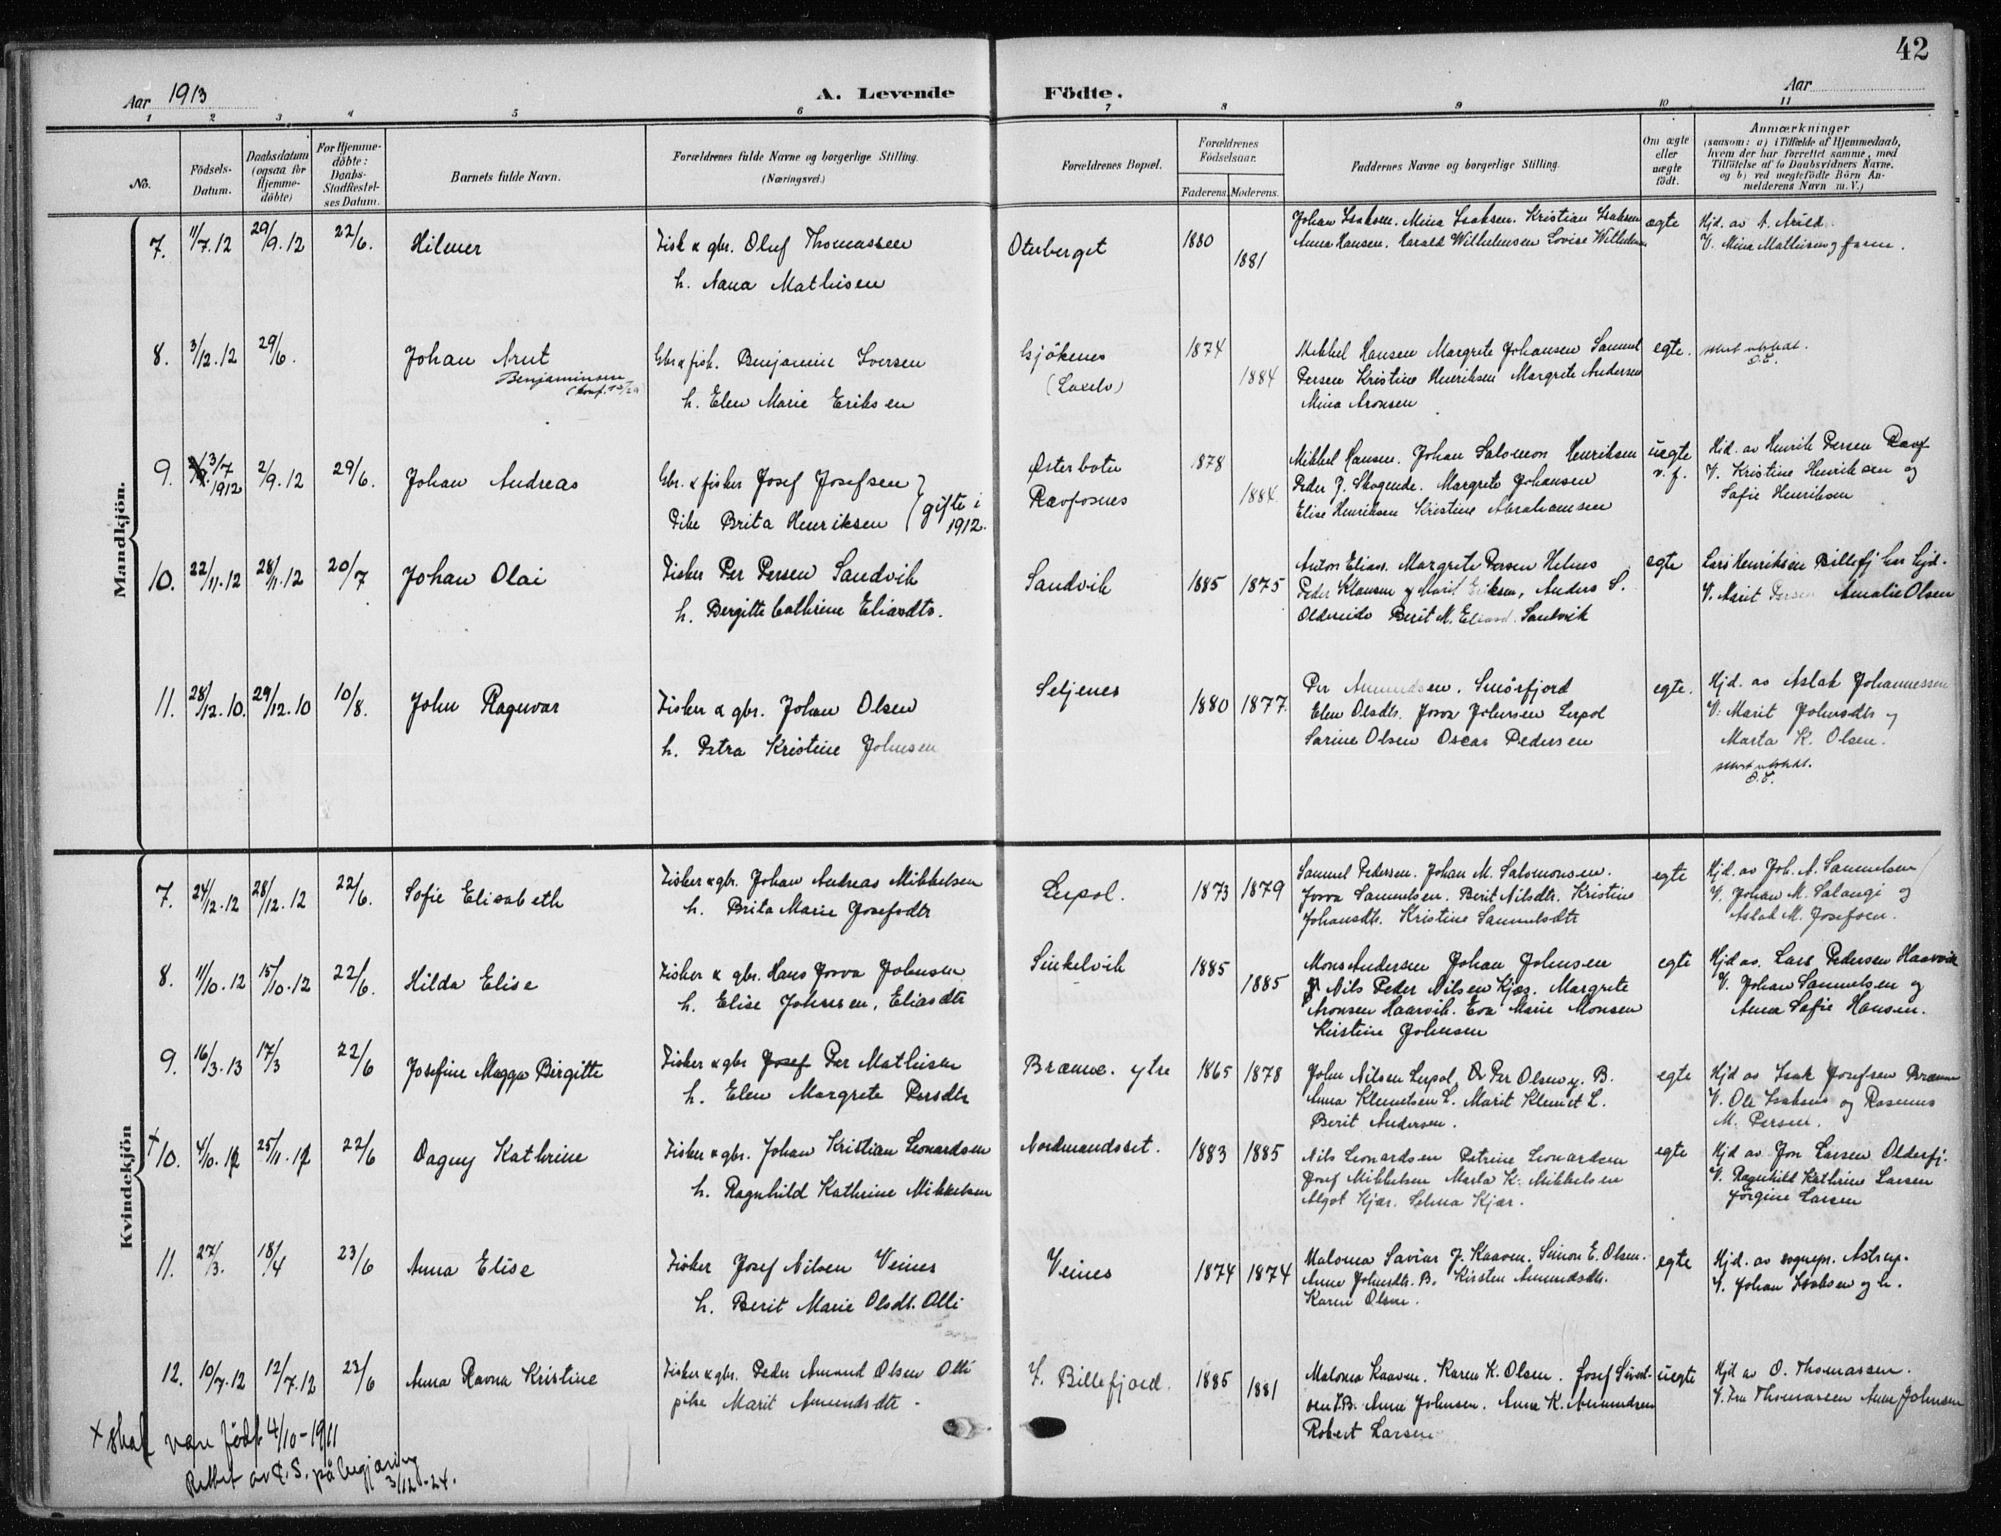 42
Aar 1913
A. Levende Födte.
Aar
1 2 3 4 5 6 7 8 9 10 11
No.
Födsels-
Datum.
Daabsdatum
(ogsaa for
Hjemme-
döbte)
For Hjemme-
döbte:
Daabs-
Stadfæstel-
ses Datum.
Barnets fulde Navn.
Forældrenes fulde Navne og borgerlige Stilling.
(Næringsvei.)
Forældrenes Bopæl.
Forældrenes
Födselsaar.
Faderens. Moderens.
Faddernes Navne og borgerlige Stilling.
Om ægte
eller
uægte
födt.
Anmærkninger
(saasom: a) i Tilfælde af Hjemmedaab,
hvem der har forrettet samme, med
Tilföielse af to Daabsvidners Navne.
og b) ved uægtefödte Börn An-
melderens Navn m. V.)
Mandkjön.
7. 11/7.12 29/9.12 22/6. Hilmer
Fisk & gbr. Oluf Thomassen
h. Nana Mathisen
Oterberget 1880 1881
Johan Isaksen. Mina Isaksen. Kristian Isaksen
Anna Hansen. Harald Wilhelmsen Lovise Wilhelmsen
ægte
Hjd. av A. Arild.
V. Mina Mathisen og farm.
8. 3/12.12 29/6. Johan Arnt
Benjaminsen
Gbr & fisk. Benjamin Iversen
h. Elen Marie Eriksen
Gjökenes
(Laxelv)
1874 1884
Mikkel Hansen Margrete Johansen Samuel
Persen Kristine Henriksen Margrete Andersen
Mina Aronsen
egte.
9. 3/7 1912 2/9.12 29/6. Johan Andreas
Gbr. & fisker Josef Josefsen
Pike Brita Henriksen
gifte i
1912.
Østerbotn
Ravfosnes
1878 1884
Mikkel Hansen. Johan Salomon Henriksen
Peder J. Skogende. Margrete Johansen
Elise Henriksen Kristine Abrahamsen
uegte
v. f.
Hjd. av Henrik Persen Ravf
V. Kristine Henriksen og
Safie Henriksen
10. 22/11.12 28/11.12 20/7 Johan Olai
Fisker Per Persen Sandvik
h. Bergitte Cathrine Eliasdtr.
Sandvik 1885 1875
Anton Elias. Margrete Persen Helnes
Peder Klausen og Marit Eriksen, Anders S.
Oldereide Berit M. Elias. Sandvik
egte
Lars Henriksen Billefj har hjd.
V. Marit Persen Amalie Olsen
11. 28/12.10. 29/12.10 10/8. John Ragnvar
Fisker & gbr. Johan Olsen
h. Petra Kristine Johnsen
Seljenes 1880 1877
Per Amundsen. Smörfjord
Elen Olsdtr. Jovva Johnsen Lerpol
Sarine Olsen Oscar Pedersen
egte.
Hjd. av Aslak Johannessen
V: Marit Johnsdtr og
Marta K. Olsen.
Kvindekjön
7. 24/12.12 28/12.12 22/6. Sofie Elisabeth
Fisker & gbr. Johan Andreas Mikkelsen
h. Brita Marie Josefsdtr
Lerpol. 1873 1879
Samuel Pedersen. Johan M. Salomonsen.
Jovva Samuelsen. Berit Nilsdtr. Kristine
Johansdtr. Kristine Samuelsdtr
egte
Hjd. av Joh. A. Samuelsen
V. Johan M. Salangi og
Aslak M. Josefsen.
8. 11/10.12 15/10.12 22/6. Hilda Elise
Fisker & gbr. Hans Jovva Johnsen
h. Elise Johnsen, Eliasdtr
Sinkelvik 1885 1885
Mons Andersen Johan Johnsen
Nils Peder Nilsen Kjæs. Margrete
Aronsen Haarvik. Eva Marie Monsen
Kristine Johnsen
egte
Hjd av. Lars Pedersen Haarvik
V. Johan Samuelsen og
Anna Safie Hansen.
9. 16/3.13 17/3 22/6 Josefine Magga Birgitte
Fisker & gbr Josef Per Mathisen
h. Elen Margrete Persdtr
Brænne. ytre 1865 1878
John Nilsen Lerpol, & Per Olsen y. B.
Anna Klemetsen L. Marit Klemet L.
Berit Andersen.
egte
Hjd av Isak Josefsen Brænne
V. Ole Isaksen og Rasmus
M. Persen.
+10. 4/10.12 25/11.12 22/6 Dagny Kathrine
Fisker & gbr. Johan Kristian Leonardsen
h. Ragnhild Kathrine Mikkelsen
Nordmandsset. 1883 1885
Nils Leonardsen Petrine Leonardsen
Josef Mikkelsen Marta K. Mikkelsen
Algot Kjær. Selma Kjær.
egte
Hjd av Jon Larsen Olderfj.
V. Ragnhild Kathrine Larsen
Jörgine Larsen
11. 27/3. 18/4 23/6 Anna Elise
Fisker Josef Nilsen Veines
h. Berit Marie Olsdt. Olli
Veines 1874 1874
Malonea Savias J. Kaaven. Simon E. Olsen.
Anne Johnsdtr. B. Kirsten Amundsdtr.
Karen Olsen.
egte
Hjd. av sognepr. Astrup.
V. Johan Isaksen og h.
12. 10/7.12 12/7.12 23/6 Anna Ravna Kristine
Fisker & gbr. Peder Amund Olsen Olli
pike Marit Amundsdtr.
Y. Billefjord. 1885 1881
Malonea Kaaven. Karen K. Olsen. Josef Sivert-
sen Y.B. Anne Johnsen. Anne K. Amundsen
Robert Larsen
uegte
Hjd av O. Thomassen.
V. Fru Thomassen Anne Johnsen
+ skal være født 4/10-1911
Rettet av E.S. på begjæring
3/12-24.